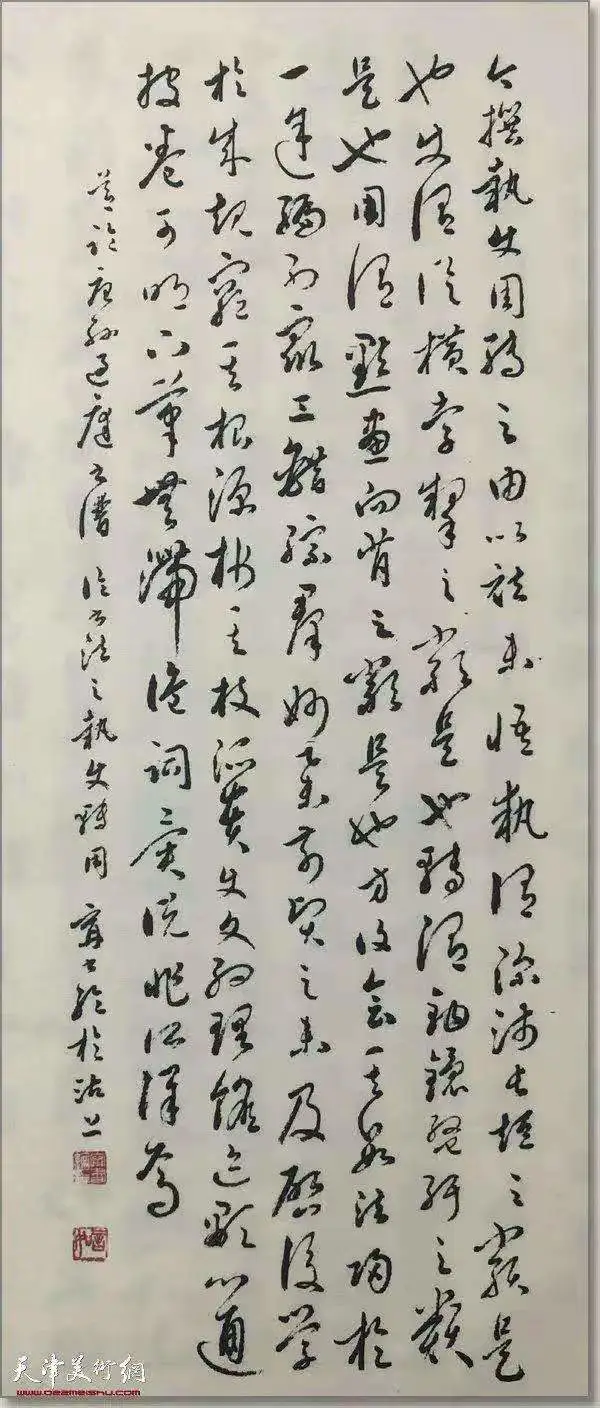 今撰執使用轉之由以祛未悟執謂深淺長短之類是
也使謂縱橫牽掣之類是也轉謂鉤鐶盤紆之類
是也用謂點畫向背之類是也方復會其數法歸於
一途編列眾工錯綜群妙舉前賢之未及啟後學
於成規窺其根源析其枝派貴使文約理贍跡顯心通
披卷可明下筆無滯詭詞異說非所詳焉
唐孫過庭書譜 論書法之執使轉用 於沽上
天津美術網
www.022meishu.com